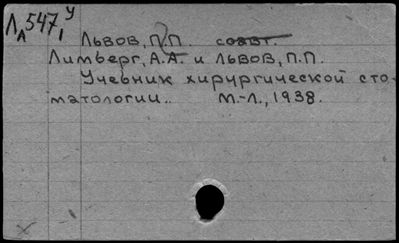 Л 547, У
Львов, П.П соавт.
Лимберг, А.А. и Львов, П.П.
Учебник хирургической сто-
матологии.. М.-Л., 1938.